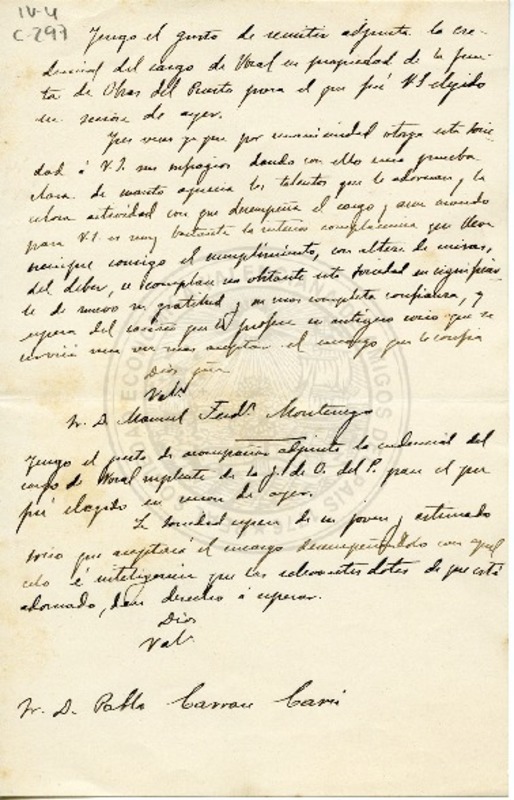 IV-4
C-297
Tengo el gusto de remitir adjunta la cre-
dencial del cargo de Vocal en propiedad de la Jun-
ta de Obras del Puerto para el que fué V.S. elegido
en sesion de ayer.
Tres veces ya que por unanimidad otorga esta Socie-
dad á V.S. sus sufragios dando con ello una prueba
clara de cuanto aprecia los talentos que le adornan y la
celosa actividad con que desempeña el cargo y aun cuando
para V.S. es muy bastante la interior complacencia que lleva
siempre consigo el cumplimiento, con alteza de miras,
del deber, se complace no obstante esta Sociedad en significar-
le de nuevo su gratitud y su mas completa confianza, y
espera del cariño que le profesa su antiguo socio que se
servirá una vez mas aceptar el encargo que le confia
Dios gue
Val.ª
Sr. D. Manuel Fernd.z Montenegro
Tengo el gusto de acompañar adjunta la credencial del
cargo de Vocal suplente de la J. de O. del P. para el que
fué elegido en sesion de ayer.
La Sociedad espera de su joven y estimado
socio que aceptará el encargo desempeñandolo con aquel
celo é inteligencia que las relevantes dotes de que está
adornado, dan derecho á esperar.
Dios
Val.ª
Sr. D. Pablo Carrau Carú
SOCIEDAD ECONOMICA AMIGOS DEL PAIS 1776